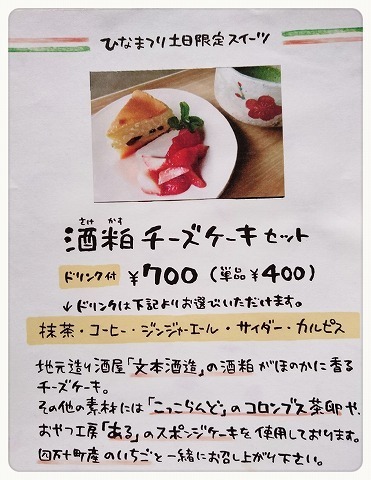 ひなまつり土日限定スイーツ
さけ かす
酒粕チーズケーキセット
ドリンク付 ¥700(単品¥400)
↓ドリンクは下記よりお選びいただけます。
抹茶・コーヒー・ジンジャーエール・サイダー・カルピス
地元造り酒屋「文本酒造」の酒粕がほのかに香る
チーズケーキ。
その他の素材には「こっこらんど」のコロンブス茶卵や、
おやつ工房「ある」のスポンジケーキを使用しております。
四万十町産のいちごと一緒にお召し上がり下さい。